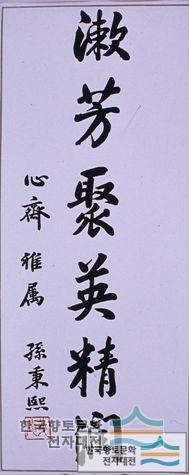 漱芳聚英精
心齊 雅属
孫秉熙
한국향토문화
전자대전
한국향토문화
전자대전